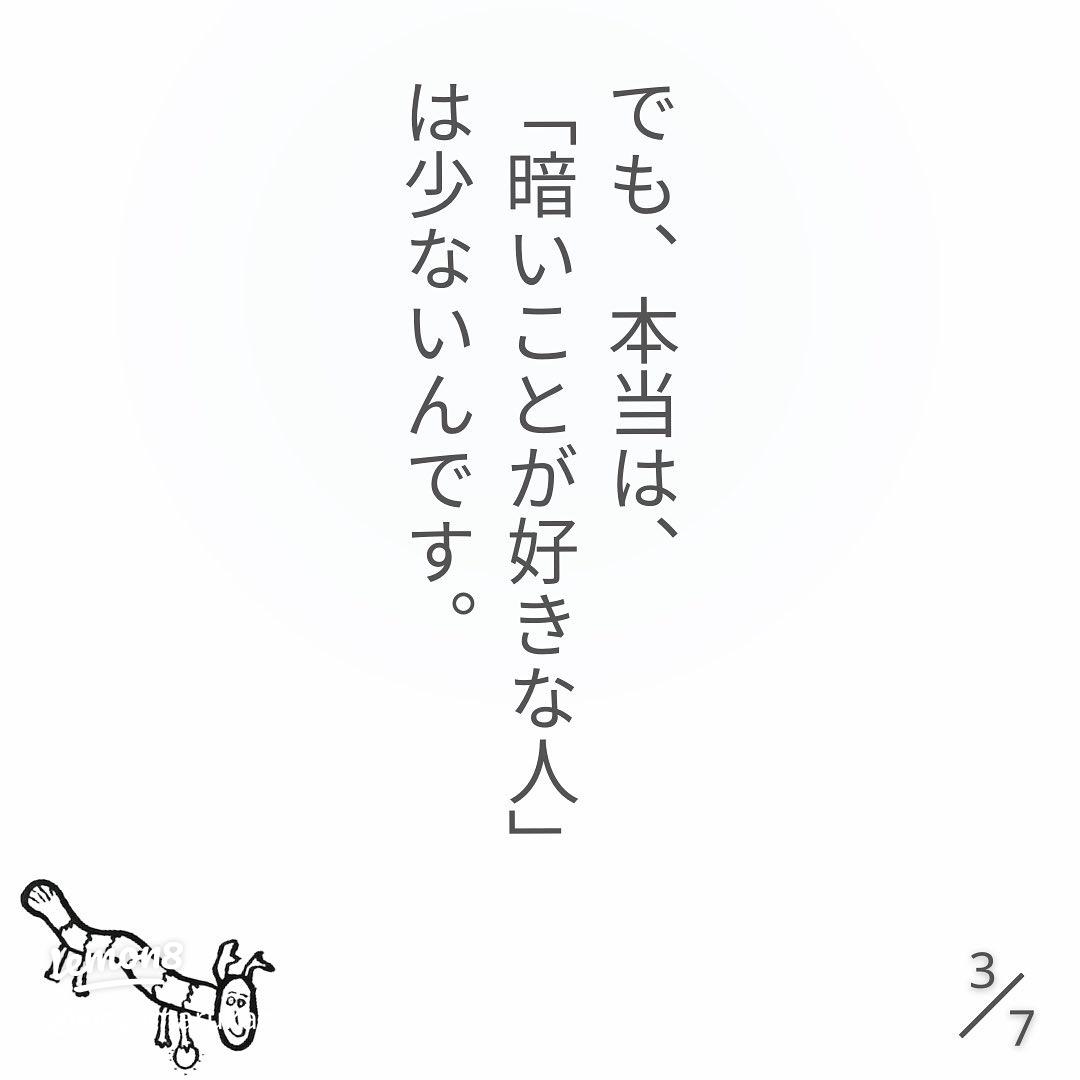 でも、本当は、
「暗いことが好きな人」
は少ないんです。
Lemon8
3/7